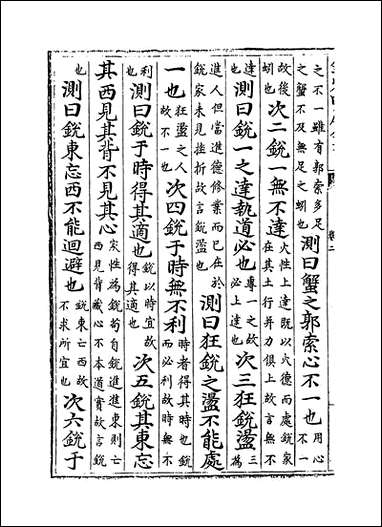 之不一雖有郭索多足之蟹不及無足之蚓也測曰蟹之郭索心不一也用心不一
故後蚓也次二銳一無不達火性上達既以火德而處銳家在其土行并力俱上故言無不
達也測曰銳一之達執道必也專一之故必上達也次三狂銳盪三為
進人但當進德修業而已在於銳家未見挫折故言銳盪也測曰狂銳之盪不能處
一也狂盪之人故不一也次四銳于時無不利時者得其時也銳而必利故時無不
利也測曰銳于時得其適也銳以時宜故得其適也次五銳其東忘
其西見其背不見其心家性為銳苟自銳進進東則亡西見背藏心不本道實故言銳
也測曰銳東忘西不能迴避也銳東亡西故不求所宜也次六銳于